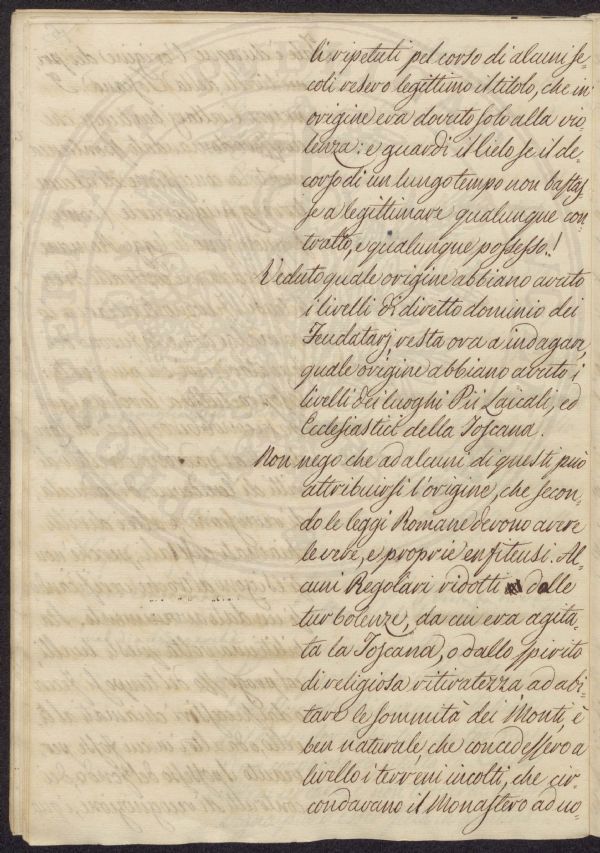 li ripetuti pel corso di alcuni se-
coli resero legittimo il titolo, che in
origine era dovuto solo alla vio-
lenza: e guardi il Cielo se il de-
corso di un lungo tempo non bastas-
se a legittimare qualunque con-
tratto, e qualunque possesso.!
Veduto quale origine abbiano avuto
i livelli di diretto dominio dei
Feudatarj resta ora a indagare,
quale origine abbiano avuto i
livelli dei luoghi Pii Laicali, ed
Ecclesiastici della Toscana.
Non nego che ad alcuni di questi può
attribuirsi l'origine, che secon-
do le leggi Romane devono avere
le vere, e proprie enfiteusi. Al-
cuni Regolari ridotti dalle
turbolenze, da cui era agita-
ta la Toscana, o dallo spirito
di religiosa ritiratezza ad abi-
tare le sommità dei Monti, è
ben naturale, che concedessero a
livello i terreni incolti, che cir-
condavano il Monastero ad uo-